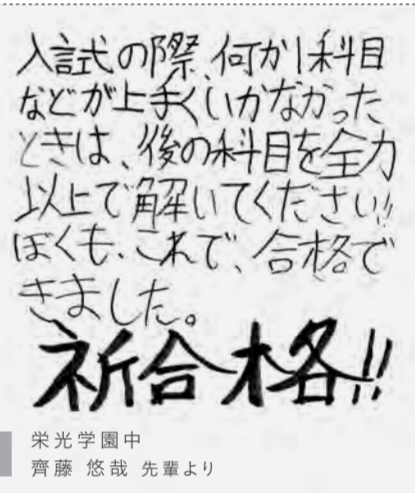 入試の際、何か1科目
などが上手くいかなかった
ときは、後の科目を全力
以上で解いてください!!
ぼくも、これで、合格で
きました。
祈合格!!
栄光学園中
齊藤 悠哉 先輩より